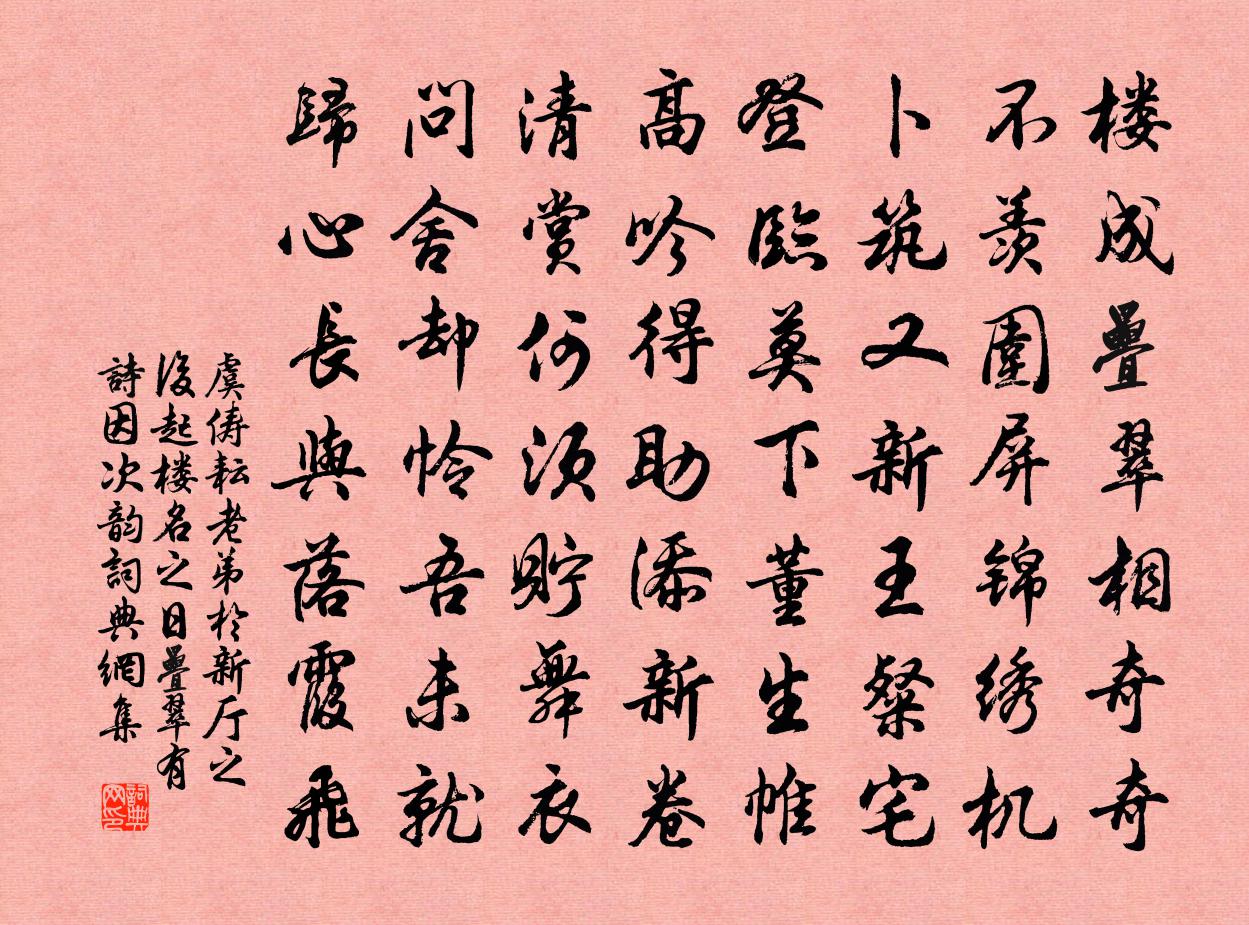 楼成疊翠相奇奇
不羡圍屏锦绣机
卜筑又新王粲宅
登臨莫下董生帷
高吟得助添新卷
清赏何须貯舞衣
問舍却怜吾未就
歸心長與落霞飛
虞俦耘老弟於新厅之
後起楼名之日疊翠有
詩因次韵詞典網集
詞典
网印